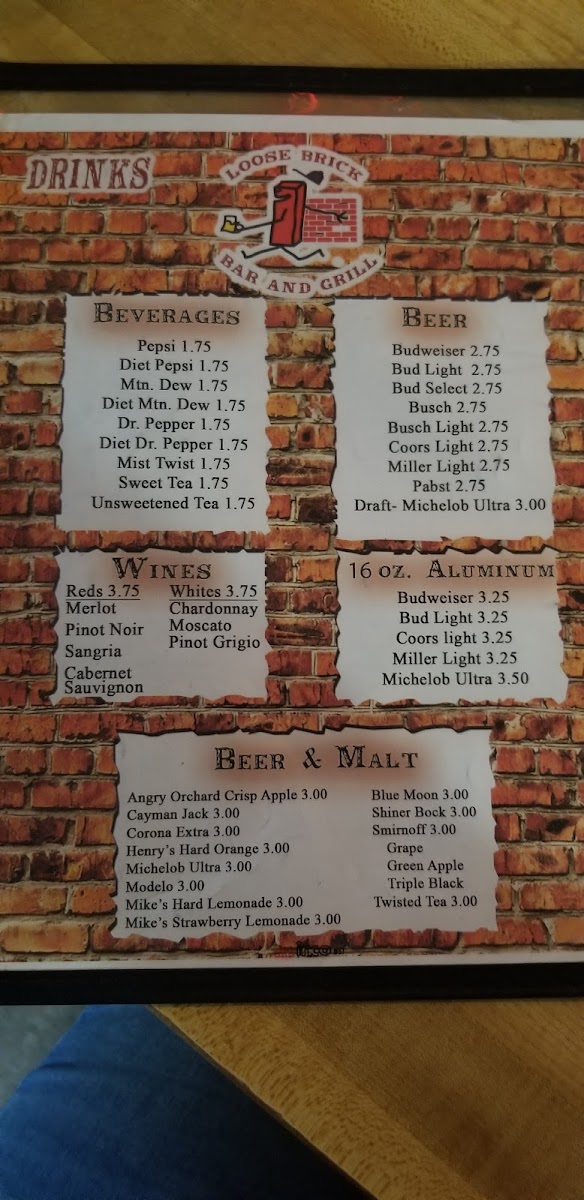 DRINKS
LOOSE BRICK
BAR AND GRILL
BEVERAGES
Pepsi 1.75
Diet Pepsi 1.75
Mtn. Dew 1.75
Diet Mtn. Dew 1.75
Dr. Pepper 1.75
Diet Dr. Pepper 1.75
Mist Twist 1.75
Sweet Tea 1.75
Unsweetened Tea 1.75
BEER
Budweiser 2.75
Bud Light 2.75
Bud Select 2.75
Busch 2.75
Busch Light 2.75
Coors Light 2.75
Miller Light 2.75
Pabst 2.75
Draft- Michelob Ultra 3.00
WINES
Reds 3.75
Merlot
Pinot Noir
Sangria
Cabernet
Sauvignon
Whites 3.75
Chardonnay
Moscato
Pinot Grigio
16 OZ. ALUMINUM
Budweiser 3.25
Bud Light 3.25
Coors light 3.25
Miller Light 3.25
Michelob Ultra 3.50
BEER & MALT
Angry Orchard Crisp Apple 3.00
Cayman Jack 3.00
Corona Extra 3.00
Henry's Hard Orange 3.00
Michelob Ultra 3.00
Modelo 3.00
Mike's Hard Lemonade 3.00
Mike's Strawberry Lemonade 3.00
Blue Moon 3.00
Shiner Bock 3.00
Smirnoff 3.00
Grape
Green Apple
Triple Black
Twisted Tea 3.00